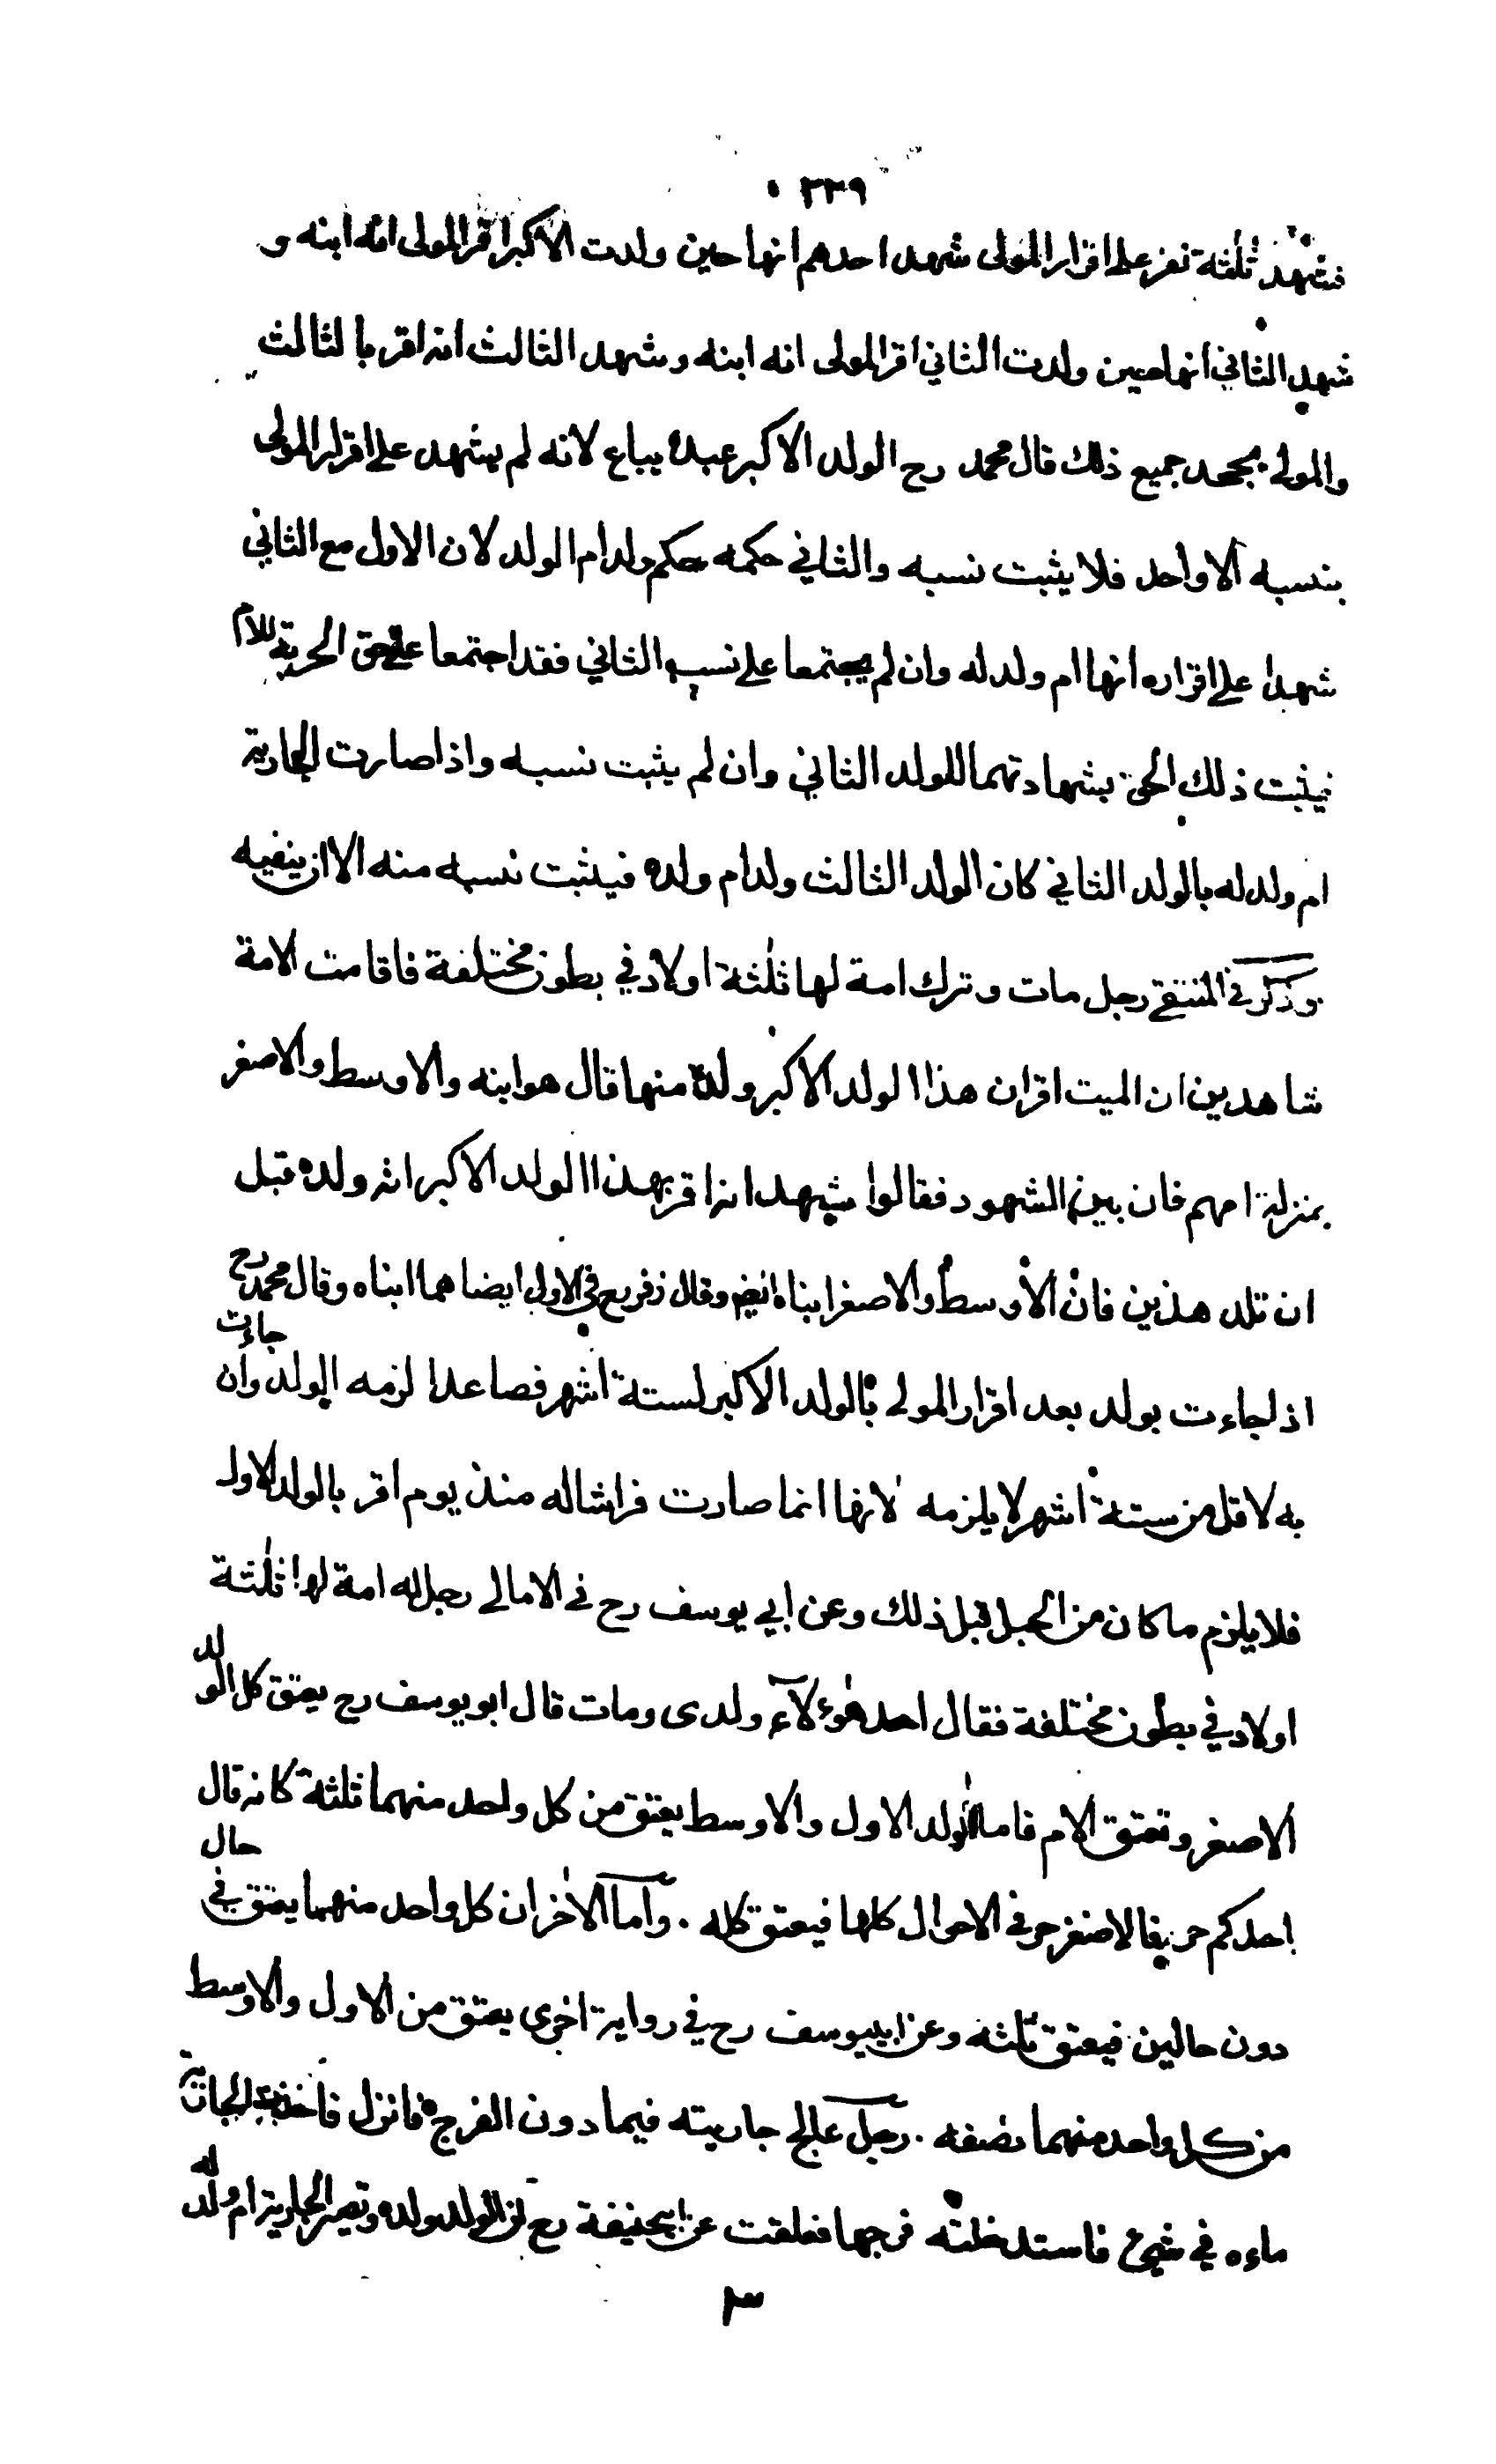 ٢٣٩
فشهد ثلثة نفر على اقرار المولى شهد احدهم انها حين ولدت الاكبر اقر المولى انه ابنه و
شهد الثاني انها حين ولدت الثاني اقر المولى انه ابنه وشهد الثالث انه اقر بالثالث
والمولى يجحد جميع ذلك قال محمد رح الولد الاكبر عبده يباع لانه لم يشهد على اقرار المولى
بنسبه الا واحد فلا يثبت نسبه والثاني حكمه حكم ولد ام الولد لان الاول مع الثاني
شهدا على اقراره انها ام ولد له وان لم يجتمعا على نسب الثاني فقد اجتمعا على حق الحرية للام
فيثبت ذلك الحق بشهادتهما للولد الثاني وان لم يثبت نسبه واذا صارت الجارية
ام ولد له بالولد الثاني كان الولد الثالث ولد ام ولده فيثبت نسبه منه الا ان ينفيه
وذكر في المنتقى رجل مات وترك امة لها ثلثة اولاد في بطون مختلفة فاقامت الامة
شاهدين ان الميت اقر ان هذا الولد الاكبر ولده منها قال هو ابنه والاوسط والاصغر
بمنزلة امهم فان بين الشهود فقالوا شهد انه اقر بهذا الولد الاكبر انه ولده قبل
ان تلد هذين فان الاوسط والاصغر ابناه ايضا وقال زفر رح في الاولى ايضا هما ابناه وقال محمد رح
اذا جاءت بولد بعد اقرار المولى بالولد الاكبر لستة اشهر فصاعدا لزمه الولد وان جاءت
به لاقل من ستة اشهر لا يلزمه لانها انما صارت فراشا له منذ يوم اقر بالولد الاول
فلا يلزم ما كان من الحبل قبل ذلك وعن ابي يوسف رح في الامالي رجل له امة لها ثلثة
اولاد في بطون مختلفة فقال احد هؤلاء ولدى ومات قال ابو يوسف رح يعتق كل الولد
الاصغر وتعتق الام فاما الولد الاول والاوسط يعتق من كل واحد منهما ثلثة كانه قال
احدكم حر فالاصغر حر في الاحوال كلها فيعتق كله . واما الاخران كل واحد منهما يعتق في حال
دون حالين فيعتق ثلثه وعن ابي يوسف رح في رواية اخرى يعتق من الاول والاوسط
من كل واحد منهما نصفه . رجل عالج جاريته فيما دون الفرج فانزل فاخذت الجارية
ماءه في شيء فاستدخلته فرجها فعلقت عن ابي حنيفة رح ان الولد ولده وتصير الجارية ام ولد له